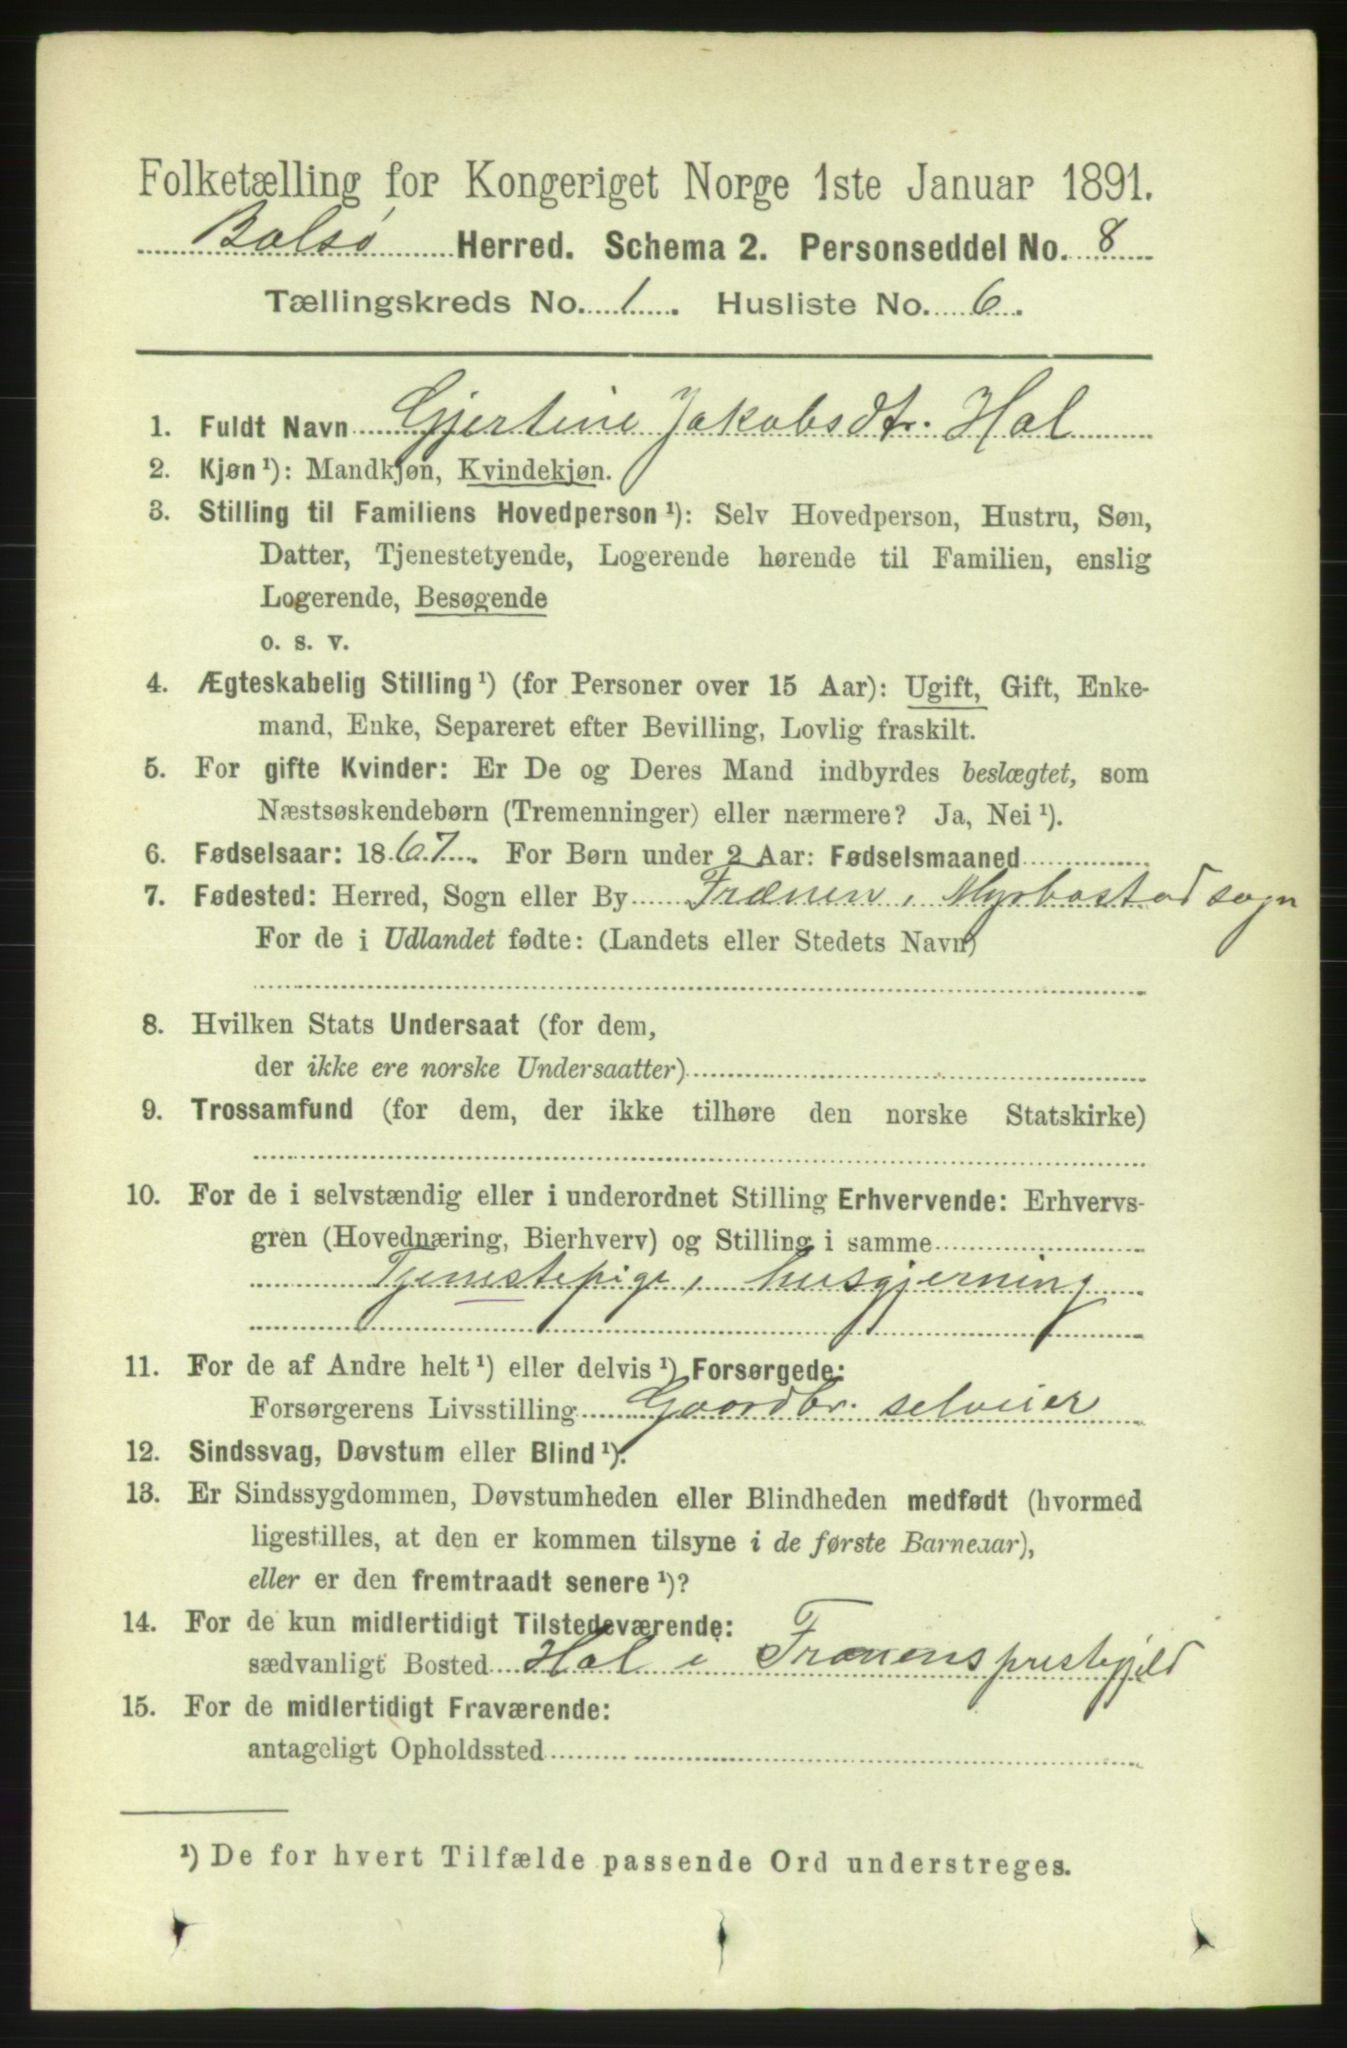 Folketælling for Kongeriget Norge 1ste Januar 1891.
Bolsø Herred. Schema 2. Personseddel No. 8
Tællingskreds No. 1. Husliste No. 6.
1. Fuldt Navn Gjertine Jakobsdtr. Hol
2. Kjøn ¹): Mandkjøn, Kvindekjøn.
3. Stilling til Familiens Hovedperson ¹): Selv Hovedperson, Hustru, Søn,
Datter, Tjenestetyende, Logerende hørende til Familien, enslig
Logerende, Besøgende
o. s. v.
4. Ægteskabelig Stilling ¹) (for Personer over 15 Aar): Ugift, Gift, Enke-
mand, Enke, Separeret efter Bevilling, Lovlig fraskilt.
5. For gifte Kvinder: Er De og Deres Mand indbyrdes beslægtet, som
Næstsøskendebørn (Tremenninger) eller nærmere? Ja, Nei ¹).
6. Fødselsaar: 1867. For Børn under 2 Aar: Fødselsmaaned
7. Fødested: Herred, Sogn eller By Frænen, Myrbostad sogn
For de i Udlandet fødte: (Landets eller Stedets Navn)
8. Hvilken Stats Undersaat (for dem,
der ikke ere norske Undersaatter)
9. Trossamfund (for dem, der ikke tilhøre den norske Statskirke)
10. For de i selvstændig eller i underordnet Stilling Erhvervende: Erhvervs-
gren (Hovednæring, Bierhverv) og Stilling i samme
Tjenestepige, husgjerning
11. For de af Andre helt ¹) eller delvis ¹) Forsørgede:
Forsørgerens Livsstilling Gaardbr. selveier
12. Sindssvag, Døvstum eller Blind ¹).
13. Er Sindssygdommen, Døvstumheden eller Blindheden medfødt (hvormed
ligestilles, at den er kommen tilsyne i de første Barneaar),
eller er den fremtraadt senere ¹)?
14. For de kun midlertidigt Tilstedeværende:
sædvanligt Bosted Hol i Frænens prestegjeld
15. For de midlertidigt Fraværende:
antageligt Opholdssted
¹) De for hvert Tilfælde passende Ord understreges.